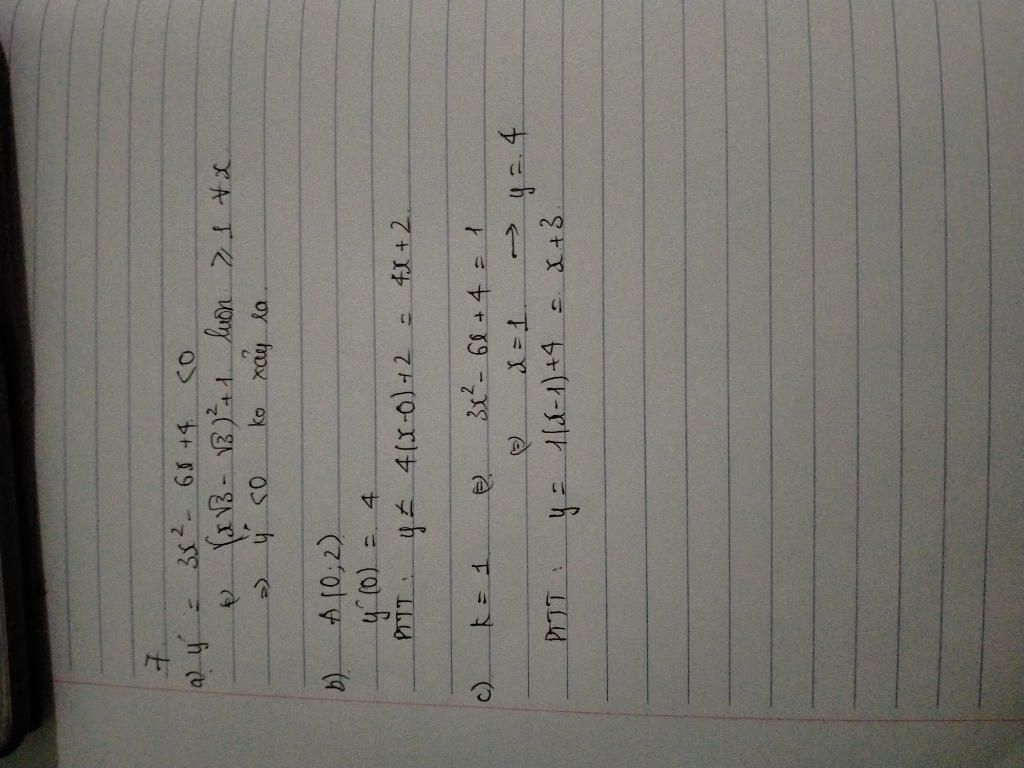 7
a) y' = 3x² - 6x + 4 < 0
⇔ (x√3 - √3)² + 1 luôn ≥ 1 ∀x
⇒ y' < 0 ko xảy ra.
b) A(0; 2)
y'(0) = 4
PTTT: y = 4(x-0)+2 = 4x+2
c) k = 1 ⇔ 3x² - 6x + 4 = 1
⇔ x = 1 → y = 4
PTTT: y = 1(x-1)+4 = x+3